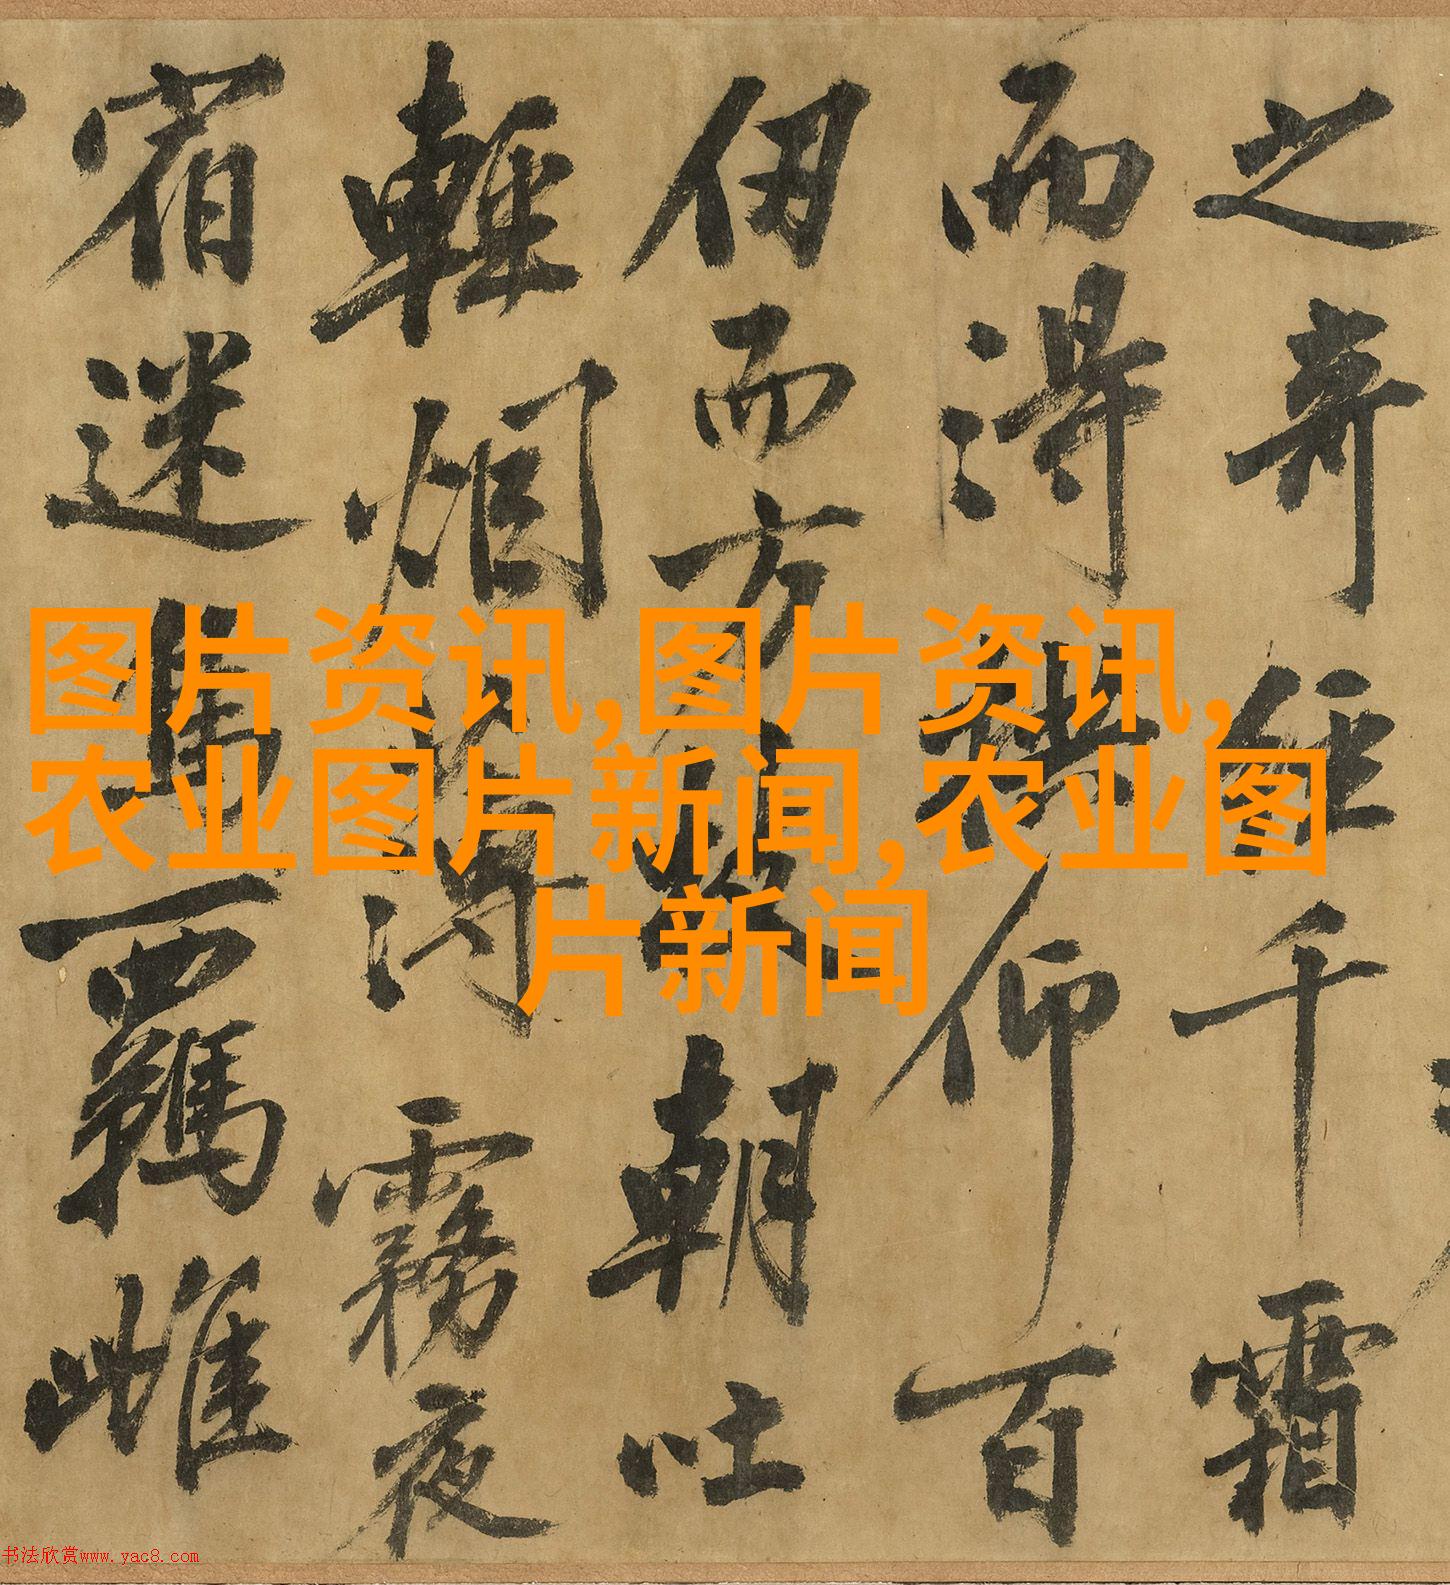 之奇經千霜
而得仰百
仞而方朝吐
輕烟霧夜
宿迷鳥羈雌
图片资讯,图片资讯,
农业图片新闻,农业图
片新闻
书法欣赏www.yac8.com